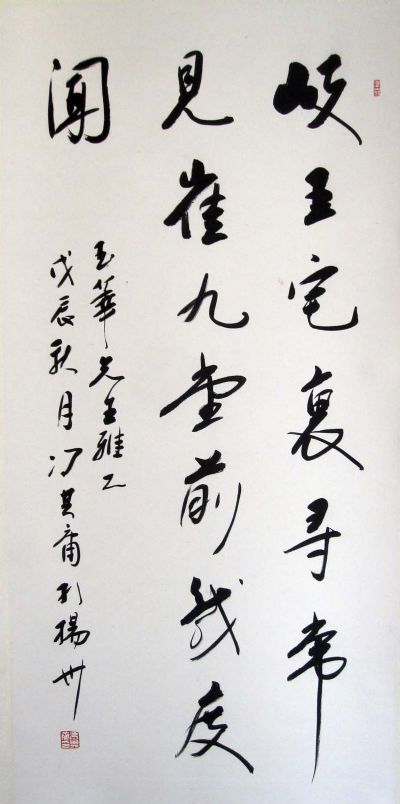 岐王宅裏尋常
見崔九堂前幾度
聞
玉華先生雅正
戊辰秋月馮其庸於揚州